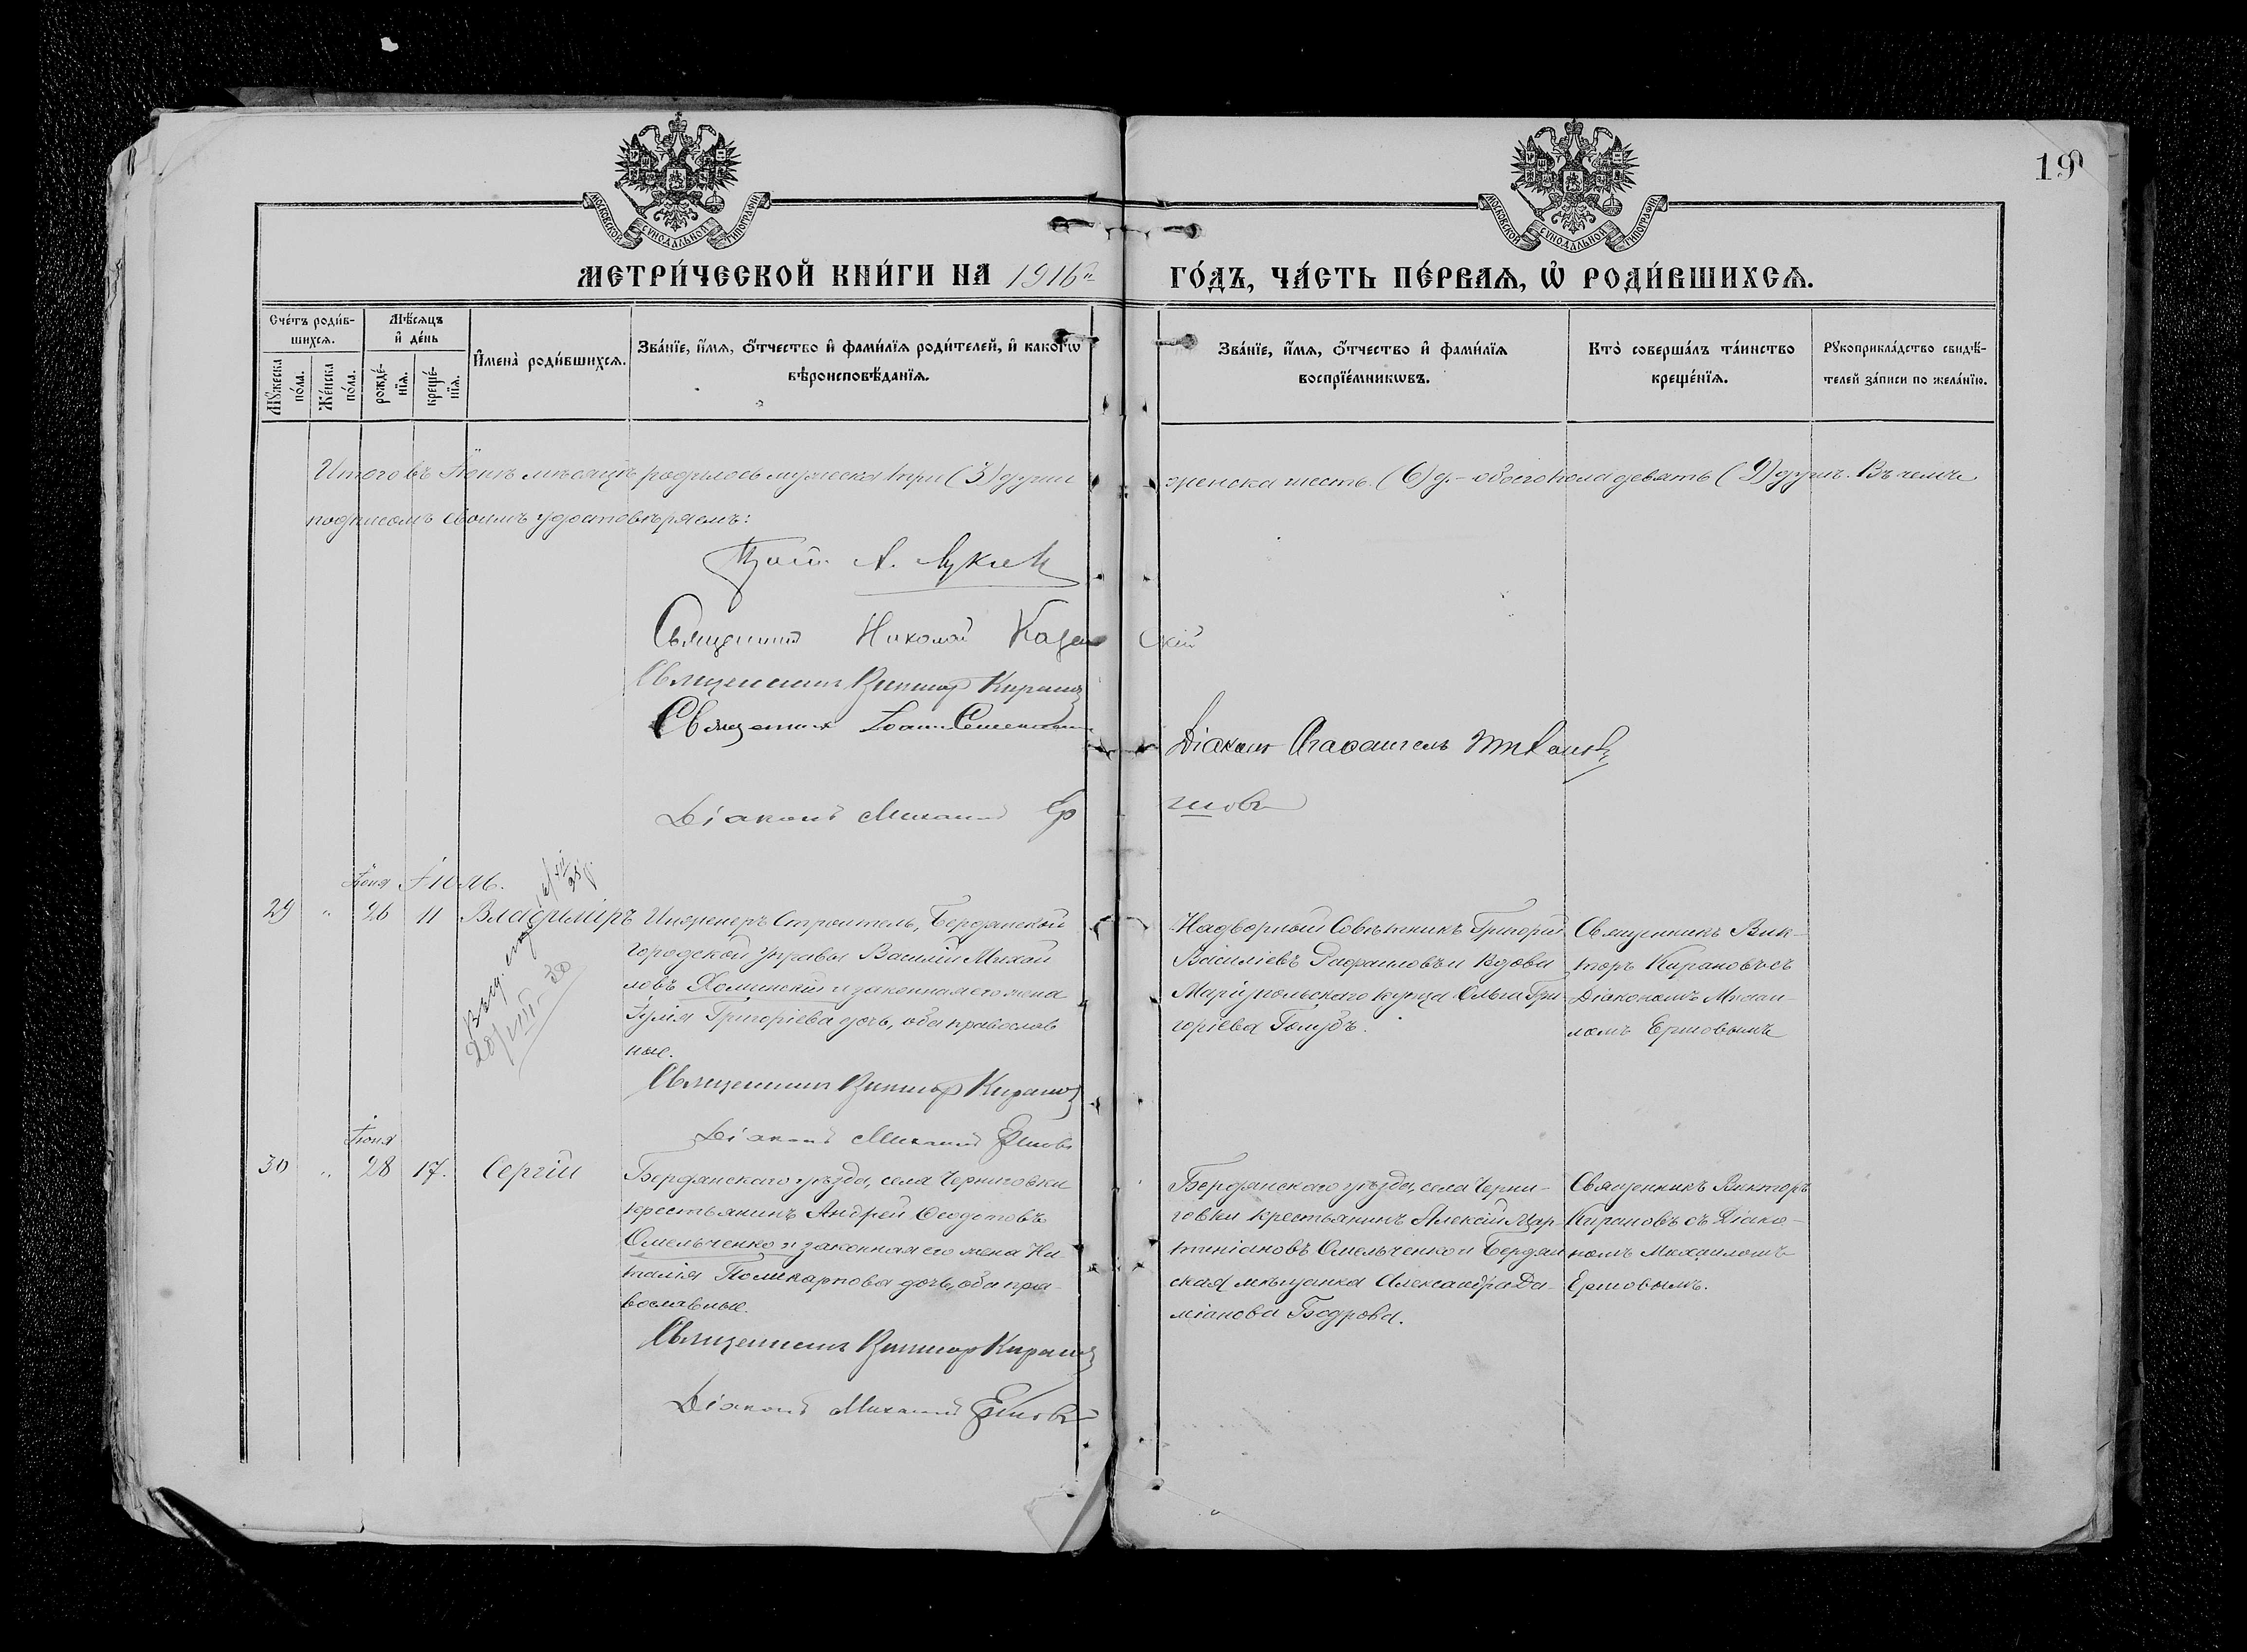 19
МОСКОВСКОЙ СѴНОДАЛЬНОЙ ТИПОГРАФІИ
МОСКОВСКОЙ СѴНОДАЛЬНОЙ ТИПОГРАФІИ
МЕТРИ́ЧЕСКОЙ КНИ́ГИ НА 1916й ГО́ДЪ, ЧА́СТЬ ПЕ́РВАѦ, Ѡ҆ РОДИ́ВШИХСѦ.
Сче́тъ роди́в-
шихсѧ.
Мꙋ́жеска
по́ла.
Же́нска
по́ла.
Мѣ́сѧцъ
и҆ де́нь
рожде́-
нїѧ.
креще́-
нїѧ.
И҆мена̀ роди́вшихсѧ.
Зва́нїе, и҆́мѧ, ѻ҆́тчество и҆ фами́лїѧ роди́телей, и҆ како́гѡ
вѣроисповѣ́данїѧ.
Зва́нїе, и҆́мѧ, ѻ҆́тчество и҆ фами́лїѧ
воспрїе́мникѡвъ.
Кто̀ соверша́лъ та́инство
креще́нїѧ.
Рꙋкоприкла́дство свидѣ́-
телей за́писи по жела́нїю.
Итого въ Іюнѣ мѣсяцѣ родилось мужеска три (3) души женска шесть (6) д. – обоего пола девять (9) душъ. Въ чемъ
подписомъ своимъ удостовѣряемъ:
Прот. А.
Священникъ Николай
Священникъ Викторъ Кирановъ
Священникъ Іоаннъ
Діаконъ Агафангелъ
Діаконъ Михаилъ Ершовъ
Іюня Іюль.
29 " 26 11 Владиміръ
Инженеръ Строитель, Бердянской
городской управы Василій Михаи
ловъ Хоминскій и законная его жена
Юлія Григоріева дочь, оба православ
ные.
Священникъ Викторъ Кирановъ
Діаконъ Михаилъ Ершовъ
Надворный Совѣтникъ Григорій
Василіевъ Рафаиловъ и вдова
Маріупольскаго купца Ольга Гри-
горіева Голубъ.
Священникъ Вик-
торъ Кирановъ съ
Діакономъ Михаи-
ломъ Ершовымъ
Іюня
30 " 28 17. Сергій
Бердянскаго уѣзда, села Черниговки
крестьянинъ Андрей Феодотовъ
Омельченко и законная его жена На
талія Поликарпова дочь, оба пра-
вославные.
Священникъ Викторъ Кирановъ
Діаконъ Михаилъ Ершовъ
Бердянскаго уѣзда, села Черни-
говки крестьянинъ Алексій Мар-
тиніановъ Омельченко и Бердян
ская мѣщанка Александра Да-
міанова Бодрова.
Священникъ Викторъ
Кирановъ съ Діако-
номъ Михаиломъ
Ершовымъ.